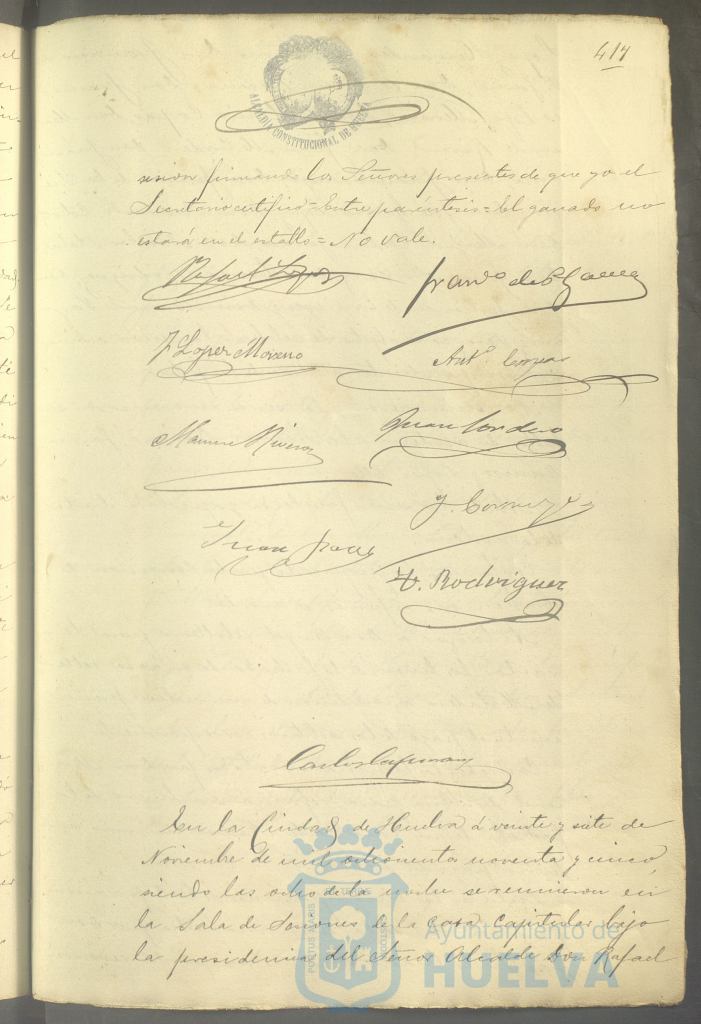 417
ALCALDIA CONSTITUCIONAL DE HUELVA
sesion firmando los Señores presentes de que yo el
Secretario certifico = Entre paréntesis = El ganado no
estará en el establo = No vale.
Rafael Lopez
Franco de P. Garcia
J Lopez Moreno
Anto
Manuel Rivera
Juan Cordero
Juan
J.
V. Rodriguez
Carlos
En la Ciudad de Huelva á veinte y siete de
Noviembre de mil ochocientos noventa y cinco,
siendo las ocho de la noche se reunieron en
la Sala de Sesiones de la casa Capitular bajo
la presidencia del Señor Alcalde Don Rafael
PORTUS MARIS
Ayuntamiento de
HUELVA